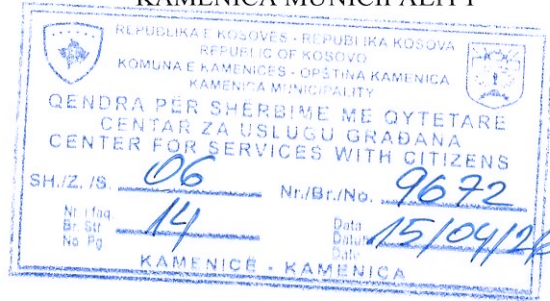 KAMENICA MUNICIPALITY
REPUBLIKA E KOSOVËS - REPUBLIKA KOSOVA
REPUBLIC OF KOSOVO
KOMUNA E KAMENICËS - OPŠTINA KAMENICA
KAMENICA MUNICIPALITY
QENDRA PËR SHERBIME ME QYTETARË
CENTAR ZA USLUGU GRAĐANA
CENTER FOR SERVICES WITH CITIZENS
SH./Z. /S. 06 Nr./Br./No. 9672
Nr. i faq.
Br. Str
No. Pg 14
Data
Datum
Date 15/04/26
KAMENICË - KAMENICA